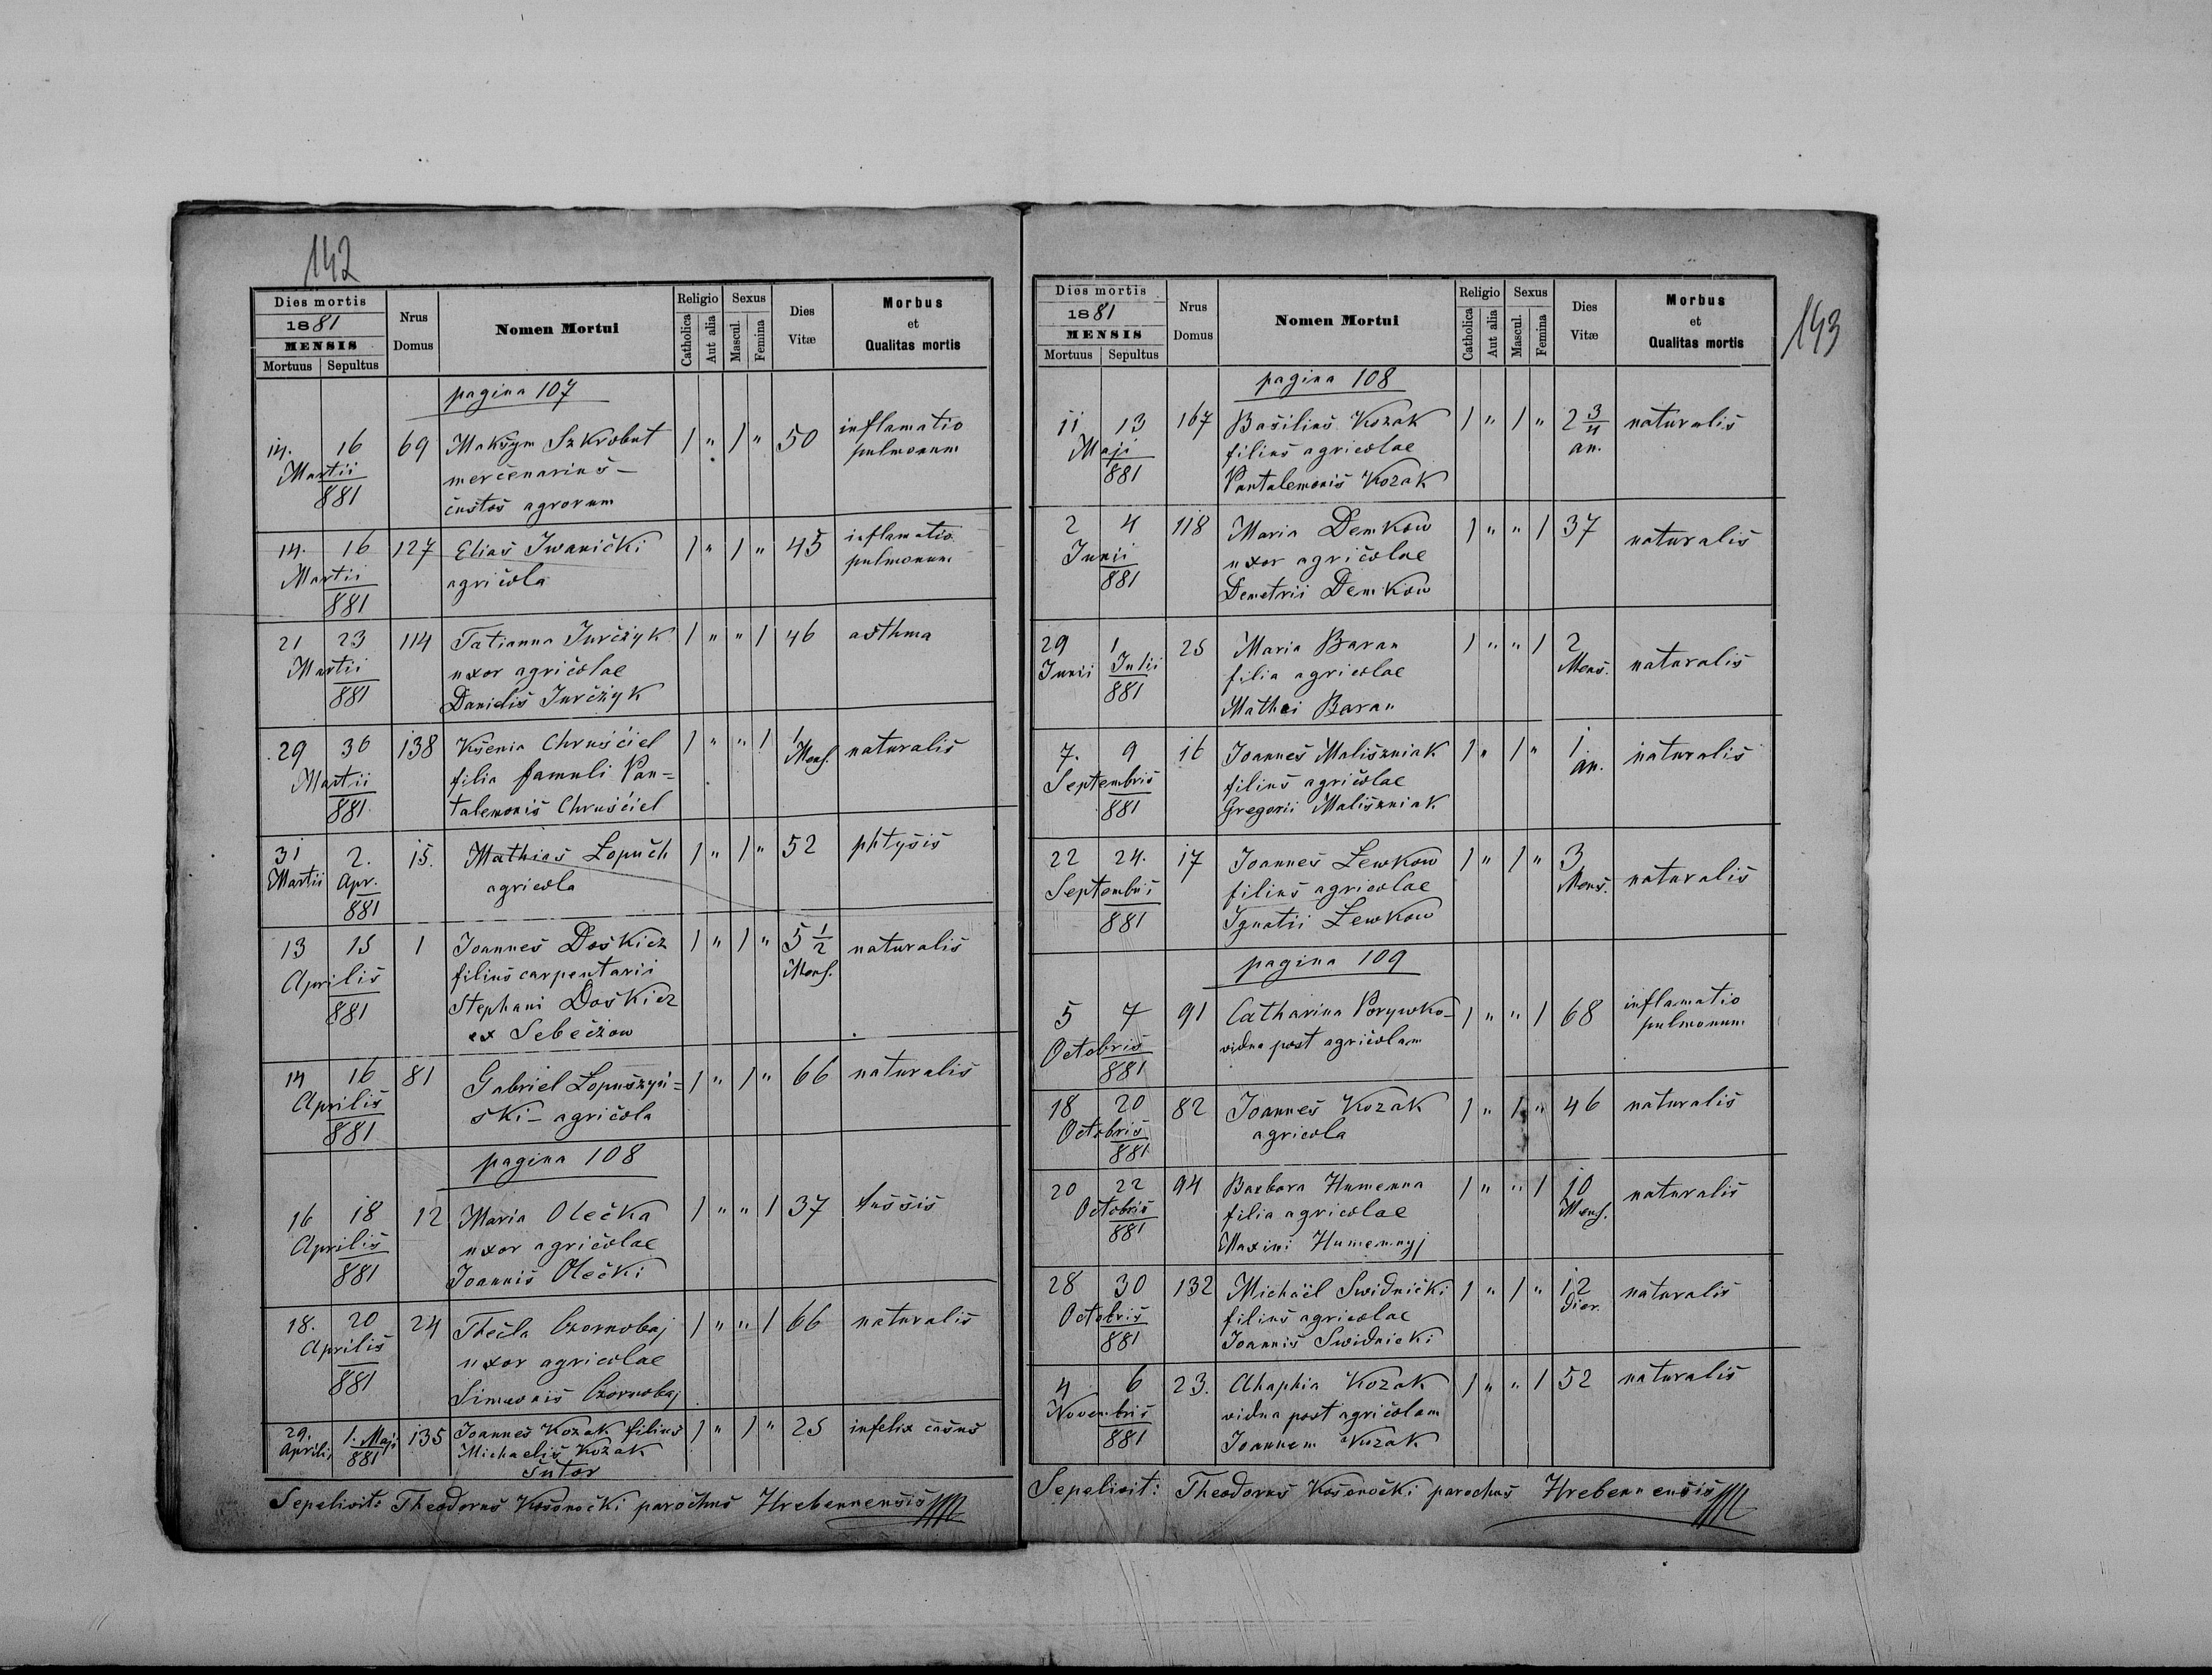 142
Dies mortis
1881
MENSIS
Mortuus Sepultus
Nrus Domus
Nomen Mortui
Religio
Catholica Aut alia
Sexus
Mascul. Femina
Dies Vitæ
Morbus et Qualitas mortis
pagina 107
14. 16 69 Maksym Szkrobut 1 " 1 " 50 inflamatio
Martii mercenarius – pulmonum
881 custos agrorum
14. 16 127 Elias Iwanicki 1 " 1 " 45 inflamatio
Martii agricola pulmonum
881
21 23 114 Tatianna Jurczyk 1 " " 1 46 asthma
Martii uxor agricolae
881 Danielis Jurczyk
29 30 138 Ksenia Chruściel 1 " " 1 1 naturalis
Martii filia famuli Pan= Mens.
881 talemonis Chruściel
31 2. 15. Mathias Łopuch 1 " 1 " 52 phtysis
Martii Apr. agricola
881
13 15 1 Joannes Doskicz 1 " 1 " 5 1/2 naturalis
Aprilis filius carpentarii Mens.
881 Stephani Doskicz
ex Sebeczow
14 16 81 Gabriel Łopuszyń= 1 " 1 " 66 naturalis
Aprilis ski – agricola
881
pagina 108
16 18 12 Maria Olecka 1 " " 1 37 tussis
Aprilis uxor agricolae
881 Joannis Olecki
18. 20 24 Thecla Czornobaj 1 " " 1 66 naturalis
Aprilis uxor agricolae
881 Simeonis Czornobaj
29. 1. Maji 135 Joannes Kozak filius 1 " 1 " 25 infelix casus
Aprilis 881 Michaelis Kozak
sutor
Sepelivit: Theodorus Kosonocki parochus Hrebennensis
143
Dies mortis
1881
MENSIS
Mortuus Sepultus
Nrus Domus
Nomen Mortui
Religio
Catholica Aut alia
Sexus
Mascul. Femina
Dies Vitæ
Morbus et Qualitas mortis
pagina 108
11 13 167 Basilius Kozak 1 " 1 " 2 3/4 naturalis
Maji filius agricolae an.
881 Pantalemonis Kozak
2 4 118 Maria Demkow 1 " " 1 37 naturalis
Junii uxor agricolae
881 Demetrii Demkow
29 1 25 Maria Baran 1 " " 1 2 naturalis
Junii Julii filia agricolae Mens.
881 Mathei Baran
7. 9 16 Joannes Maliszniak 1 " 1 " 1 naturalis
Septembris filius agricolae an.
881 Gregorii Maliszniak
22 24. 17 Joannes Lewkow 1 " 1 " 3 naturalis
Septembris filius agricolae Mens.
881 Ignatii Lewkow
pagina 109
5 7 91 Catharina Porywko– 1 " " 1 68 inflamatio
Octobris vidua post agricolam pulmonum
881
18 20 82 Joannes Kozak 1 " 1 " 46 naturalis
Octobris agricola
881
20 22 94 Barbara Humenna 1 " " 1 10 naturalis
Octobris filia agricolae Mens.
881 Maximi Humennyj
28 30 132 Michaël Swidnicki 1 " 1 " 12 naturalis
Octobris filius agricolae dier.
881 Joannis Swidnicki
4 6 23. Ahaphia Kozak 1 " " 1 52 naturalis
Novembris vidua post agricolam
881 Joannem Kozak
Sepelivit: Theodorus Kosonocki parochus Hrebennensis